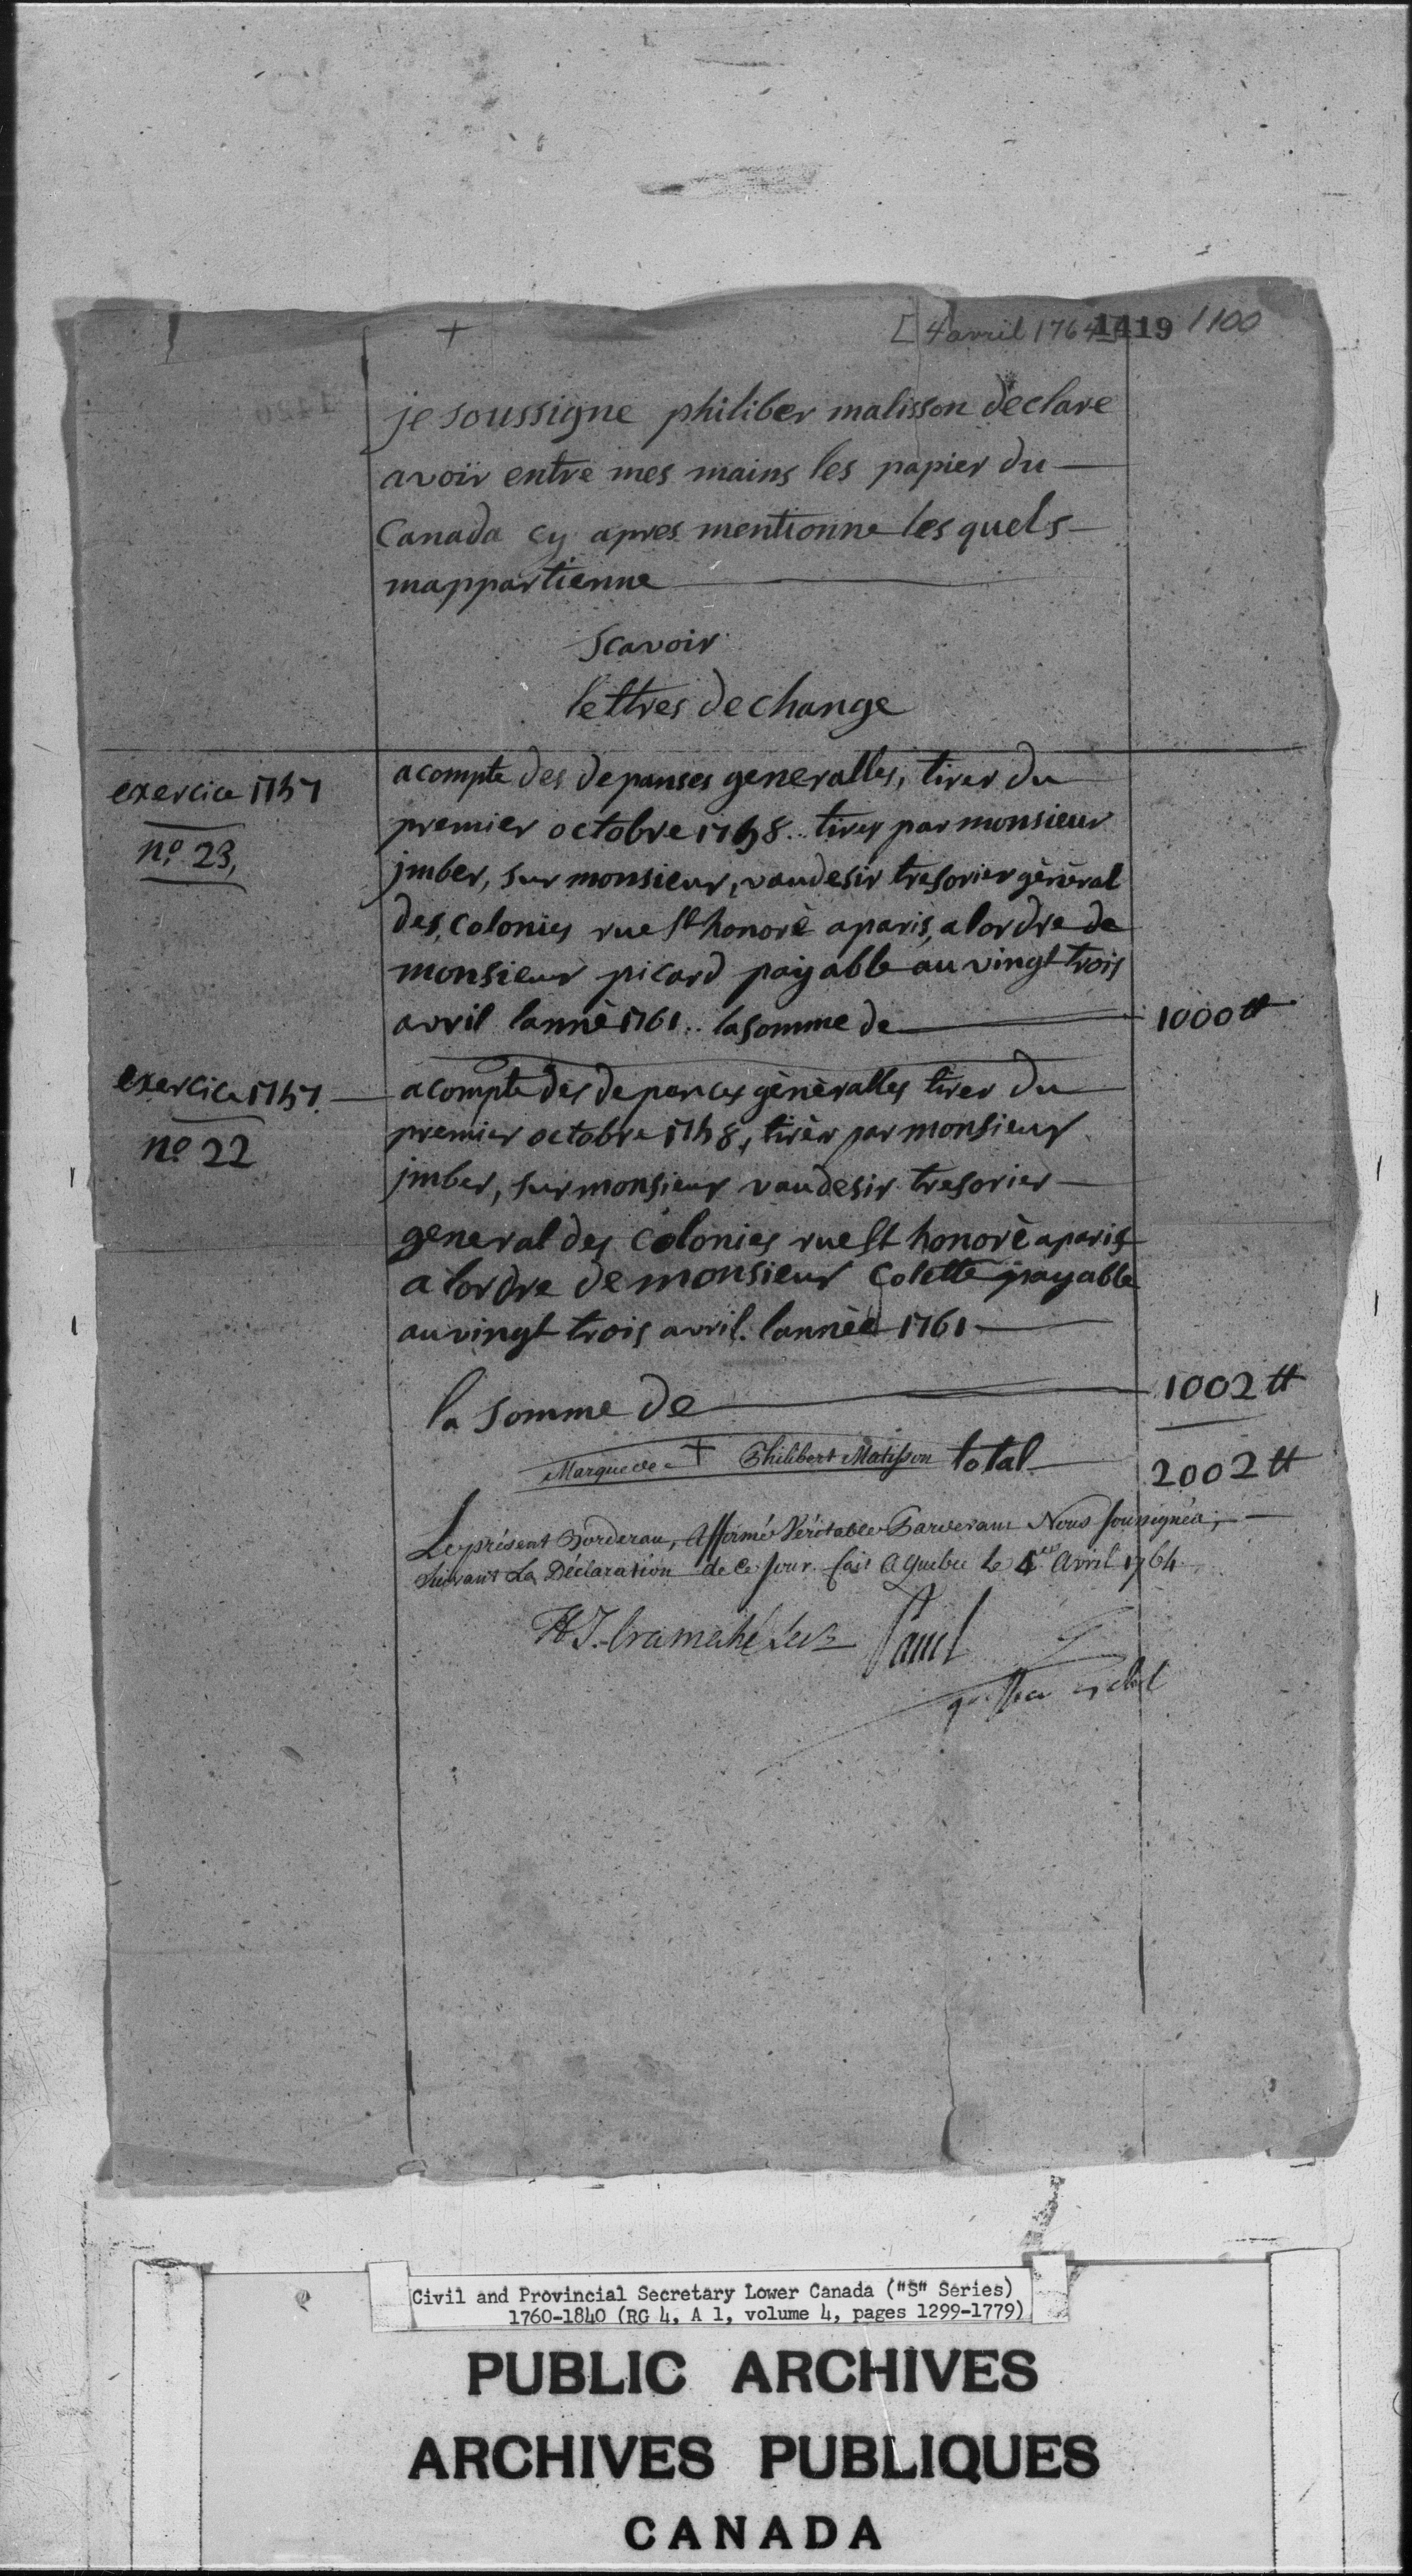 [4 avril 1764] 1419 1100
+
je soussigne philiber malisson declare
avoir entre mes mains les papier du
Canada cy apres mentionne les quels
mappartienne
Scavoir
lettres de change
exercice 1757
no. 23,
acompte des depanses generalles, tirer du
premier octobre 1758.. tirer par monsieur
jmber, sur monsieur, vaudesir tresorier géneral
des, colonies rue St honoré a paris, a lordre de
monsieur picard payable au vingt trois
avril lanné 1761.. la somme de 1000 tt
exercice 1757.
no 22
acompte des depances généralles tirer du
premier octobre 1758, tirèr par monsieur
jmber, sur monsieur vaudesir tresorier
general des colonies rue St honorè a paris
a lordre de monsieur Colette payable
au vingt trois avril. lannèe 1761
la somme de 1002 tt
Marque de + Philibert Matisson total 2002 tt
Le présent Borderau, Affirmé Véritable Pardevant Nous soussignéz,
suivant La Déclaration de ce jour. fait a Quebec le 4 Avril 1764
H T. Cramahé Panet
Civil and Provincial Secretary Lower Canada ("S" Series)
1760-1840 (RG 4, A 1, volume 4, pages 1299-1779)
PUBLIC ARCHIVES
ARCHIVES PUBLIQUES
CANADA